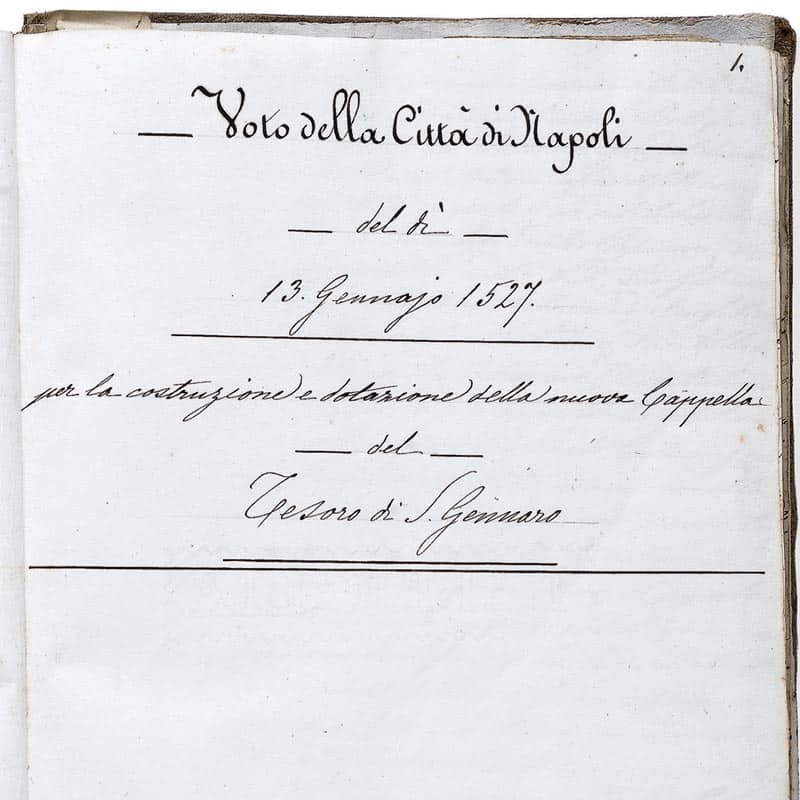 1.
— Voto della Città di Napoli —
— del dì —
13. Gennajo 1527.
per la costruzione e dotazione della nuova Cappella
— del —
Tesoro di S. Gennaro